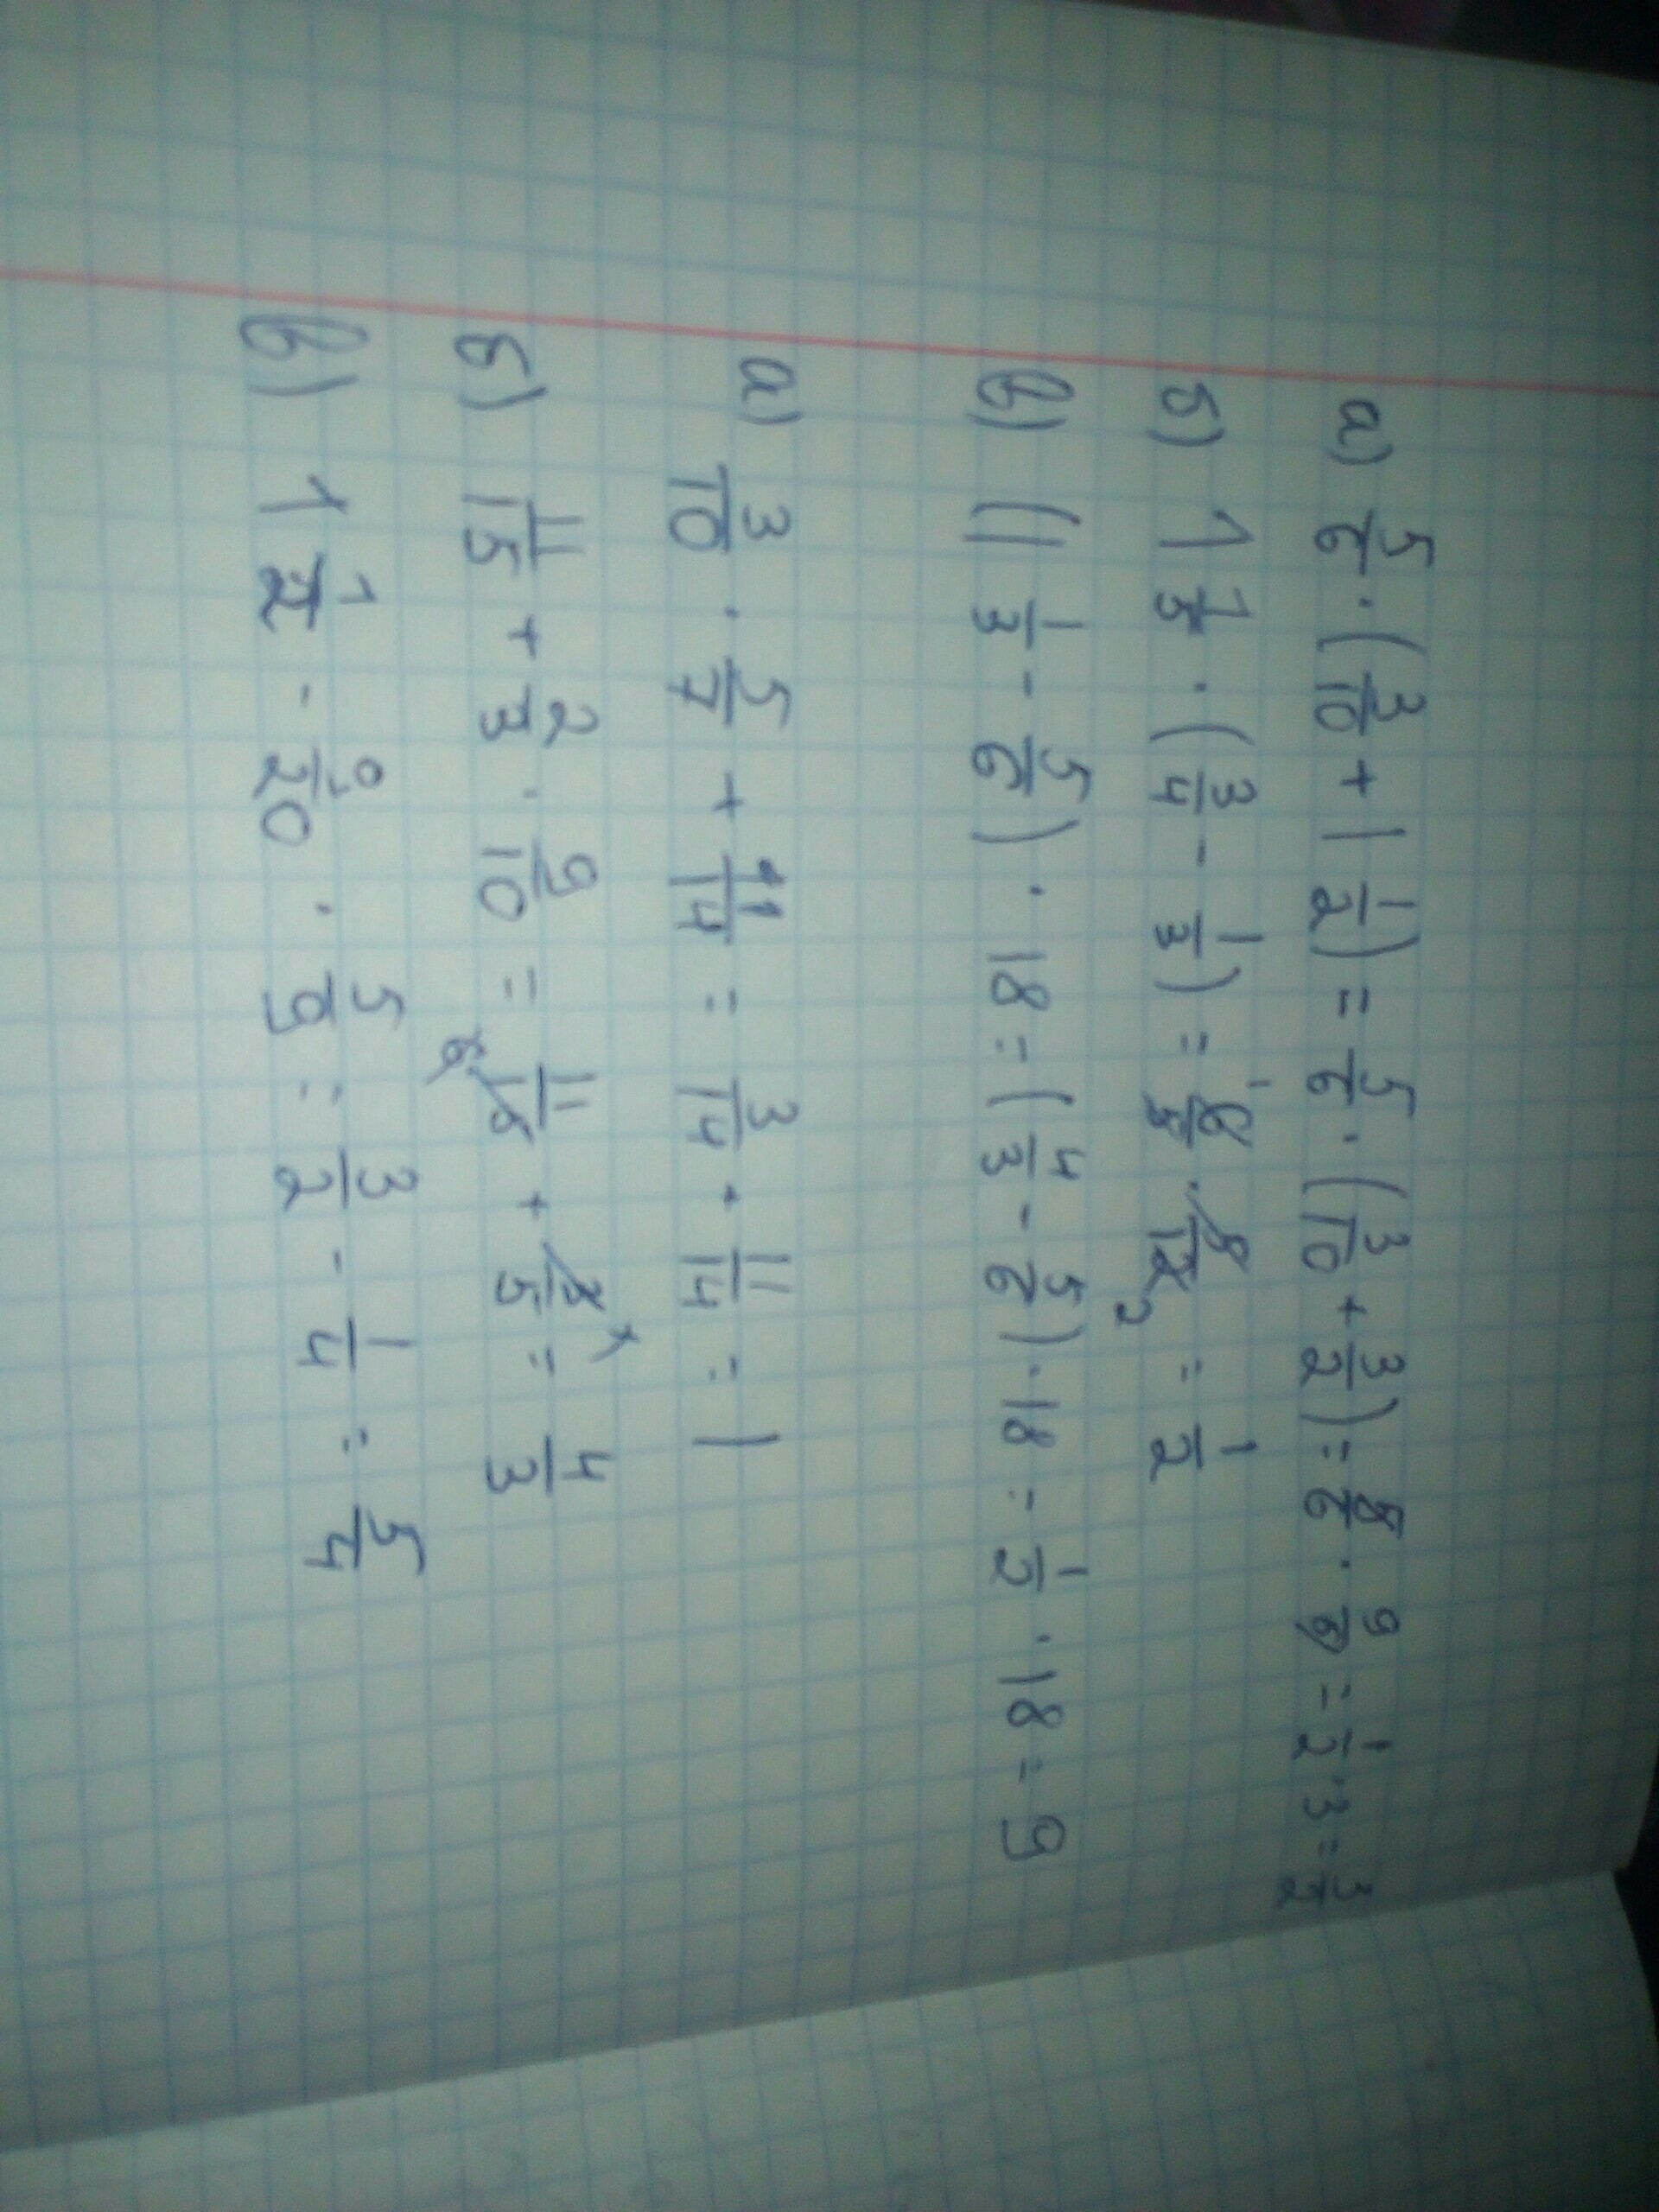 а) 5/6 · (3/10 + 1 1/2) = 5/6 · (3/10 + 3/2) = 5/6 · 9/5 = 1/2 · 3 = 3/2
б) 1 1/5 · (3/4 - 1/3) = 6/5 · 5/12 2 = 1/2
в) (1 1/3 - 5/6) · 18 = (4/3 - 5/6) · 18 = 1/2 · 18 = 9
а) 3/10 · 5/7 + 11/14 = 3/14 + 11/14 = 1
б) 11/15 + 2/3 · 9/10 = 11/15 + 3/5 = 4/3
в) 1 1/2 - 9/20 · 5/9 = 3/2 - 1/4 = 5/4